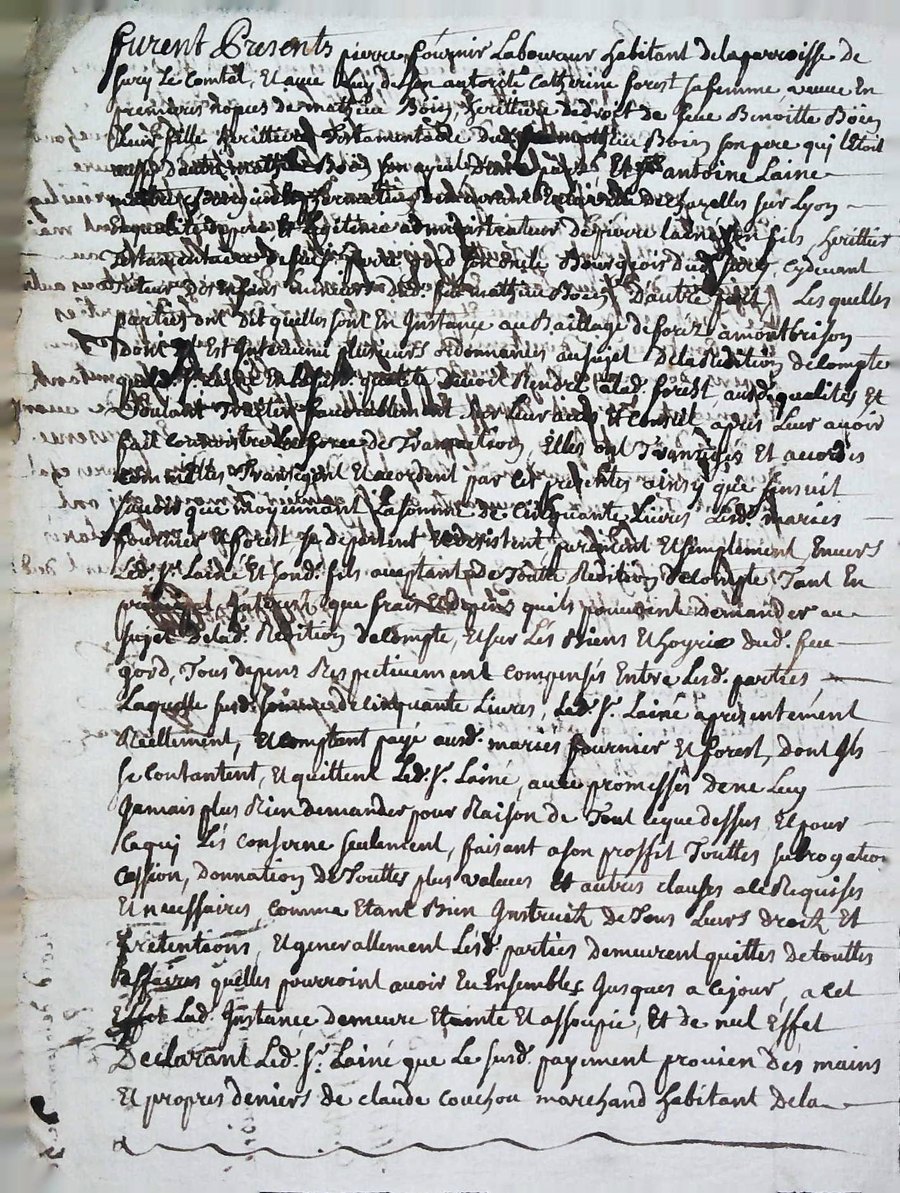 furent Presents pierre fournir Laboureur habitant dela parroisse de
Sury Le Comtal, Et avec Luy de son autorité Catherine forest sa femme, veuve En
premieres nopces de mathieu Boïs, heritiere de droit de feue Benoitte Boïs
Leur fille heritiere Testamentaire dud. mathieu Boïs son pere qui l'Etoit
d'autre mathieu Boïs son ayeul d'une part Et Sr. antoine Laine
maitre chirurgien demeurant En la ville de Chazelles sur Lyon
En qualité de pere Et Legitime administrateur de pierre lainé son fils, heritier
Testamentaire de feu pierre gord son oncle Bourgeois dud. Sury, cy devant
Tuteur des Enfans mineurs dud. feu mathieu Boïs d'autre part Lesquelles
parties ont dit quelles sont En Instance au Baillage de forez a montbrison
Dont Est Intervenu plusieurs ordonnances au sujet dela Redition de Compte
que led. Sr. Lainé En lad. qualité devoit Rendre a lad. forest, ausd. qualités Et
voulant Traiter favorablement par Leur avis Et Conseil apres Leur avoir
fait Connoistre La force de Transaction, Elles ont Transigés Et acordés
Comm'Elles Transigent Et acordent par Ces presentes ainsy que s'ensuit
Savoir que moyennant La Somme de Cinquante Livres Lesd. mariés
fournier Et forest, se departent Et desistent purement Et simplement Envers
Led. Sr. Lainé Et sond. fils acceptant de Toutte Redition de Compte Tant En
principal Interest que frais Et depens quils pouvoient demander au
sujet de lad. Redition de Compte, Et sur Les Biens Et hoyrie dud. feu
gord, Tous depens Respectivement Compensés Entre Lesd. parties
Laquelle susd. somme de Cinquante Livres, Led. Sr. Lainé a presentement
Reellement, Et Comptent payé ausd. mariés fournier Et forest, dont Ils
se Contantent, Et quittent Led. Sr. Lainé, avec promesses de ne Luy
Jamais plus Rien demander pour Raison de Tout Ceque dessus Et pour
Cequi Les Conserne seulement, faisant a son proffit Touttes subrogation
Cession, Donnation de Touttes plus values Et autres clauses a Ce Requises
Et necessaires, Comme Etant Bien Instruits de Tous Leurs droits Et
pretentions, Et generallement Lesd. parties demeurent quittes de touttes
affaires quelles pourroint avoir Eu Ensembles Jusques a Cejour, a Cet
Effet Lad. Instance demeure Eteinte Et assoupie, Et de nul Effet
Declarant Led. Sr. Lainé que Le susd. payement provien des mains
Et propres deniers de claude Couchou marchand habitant dela